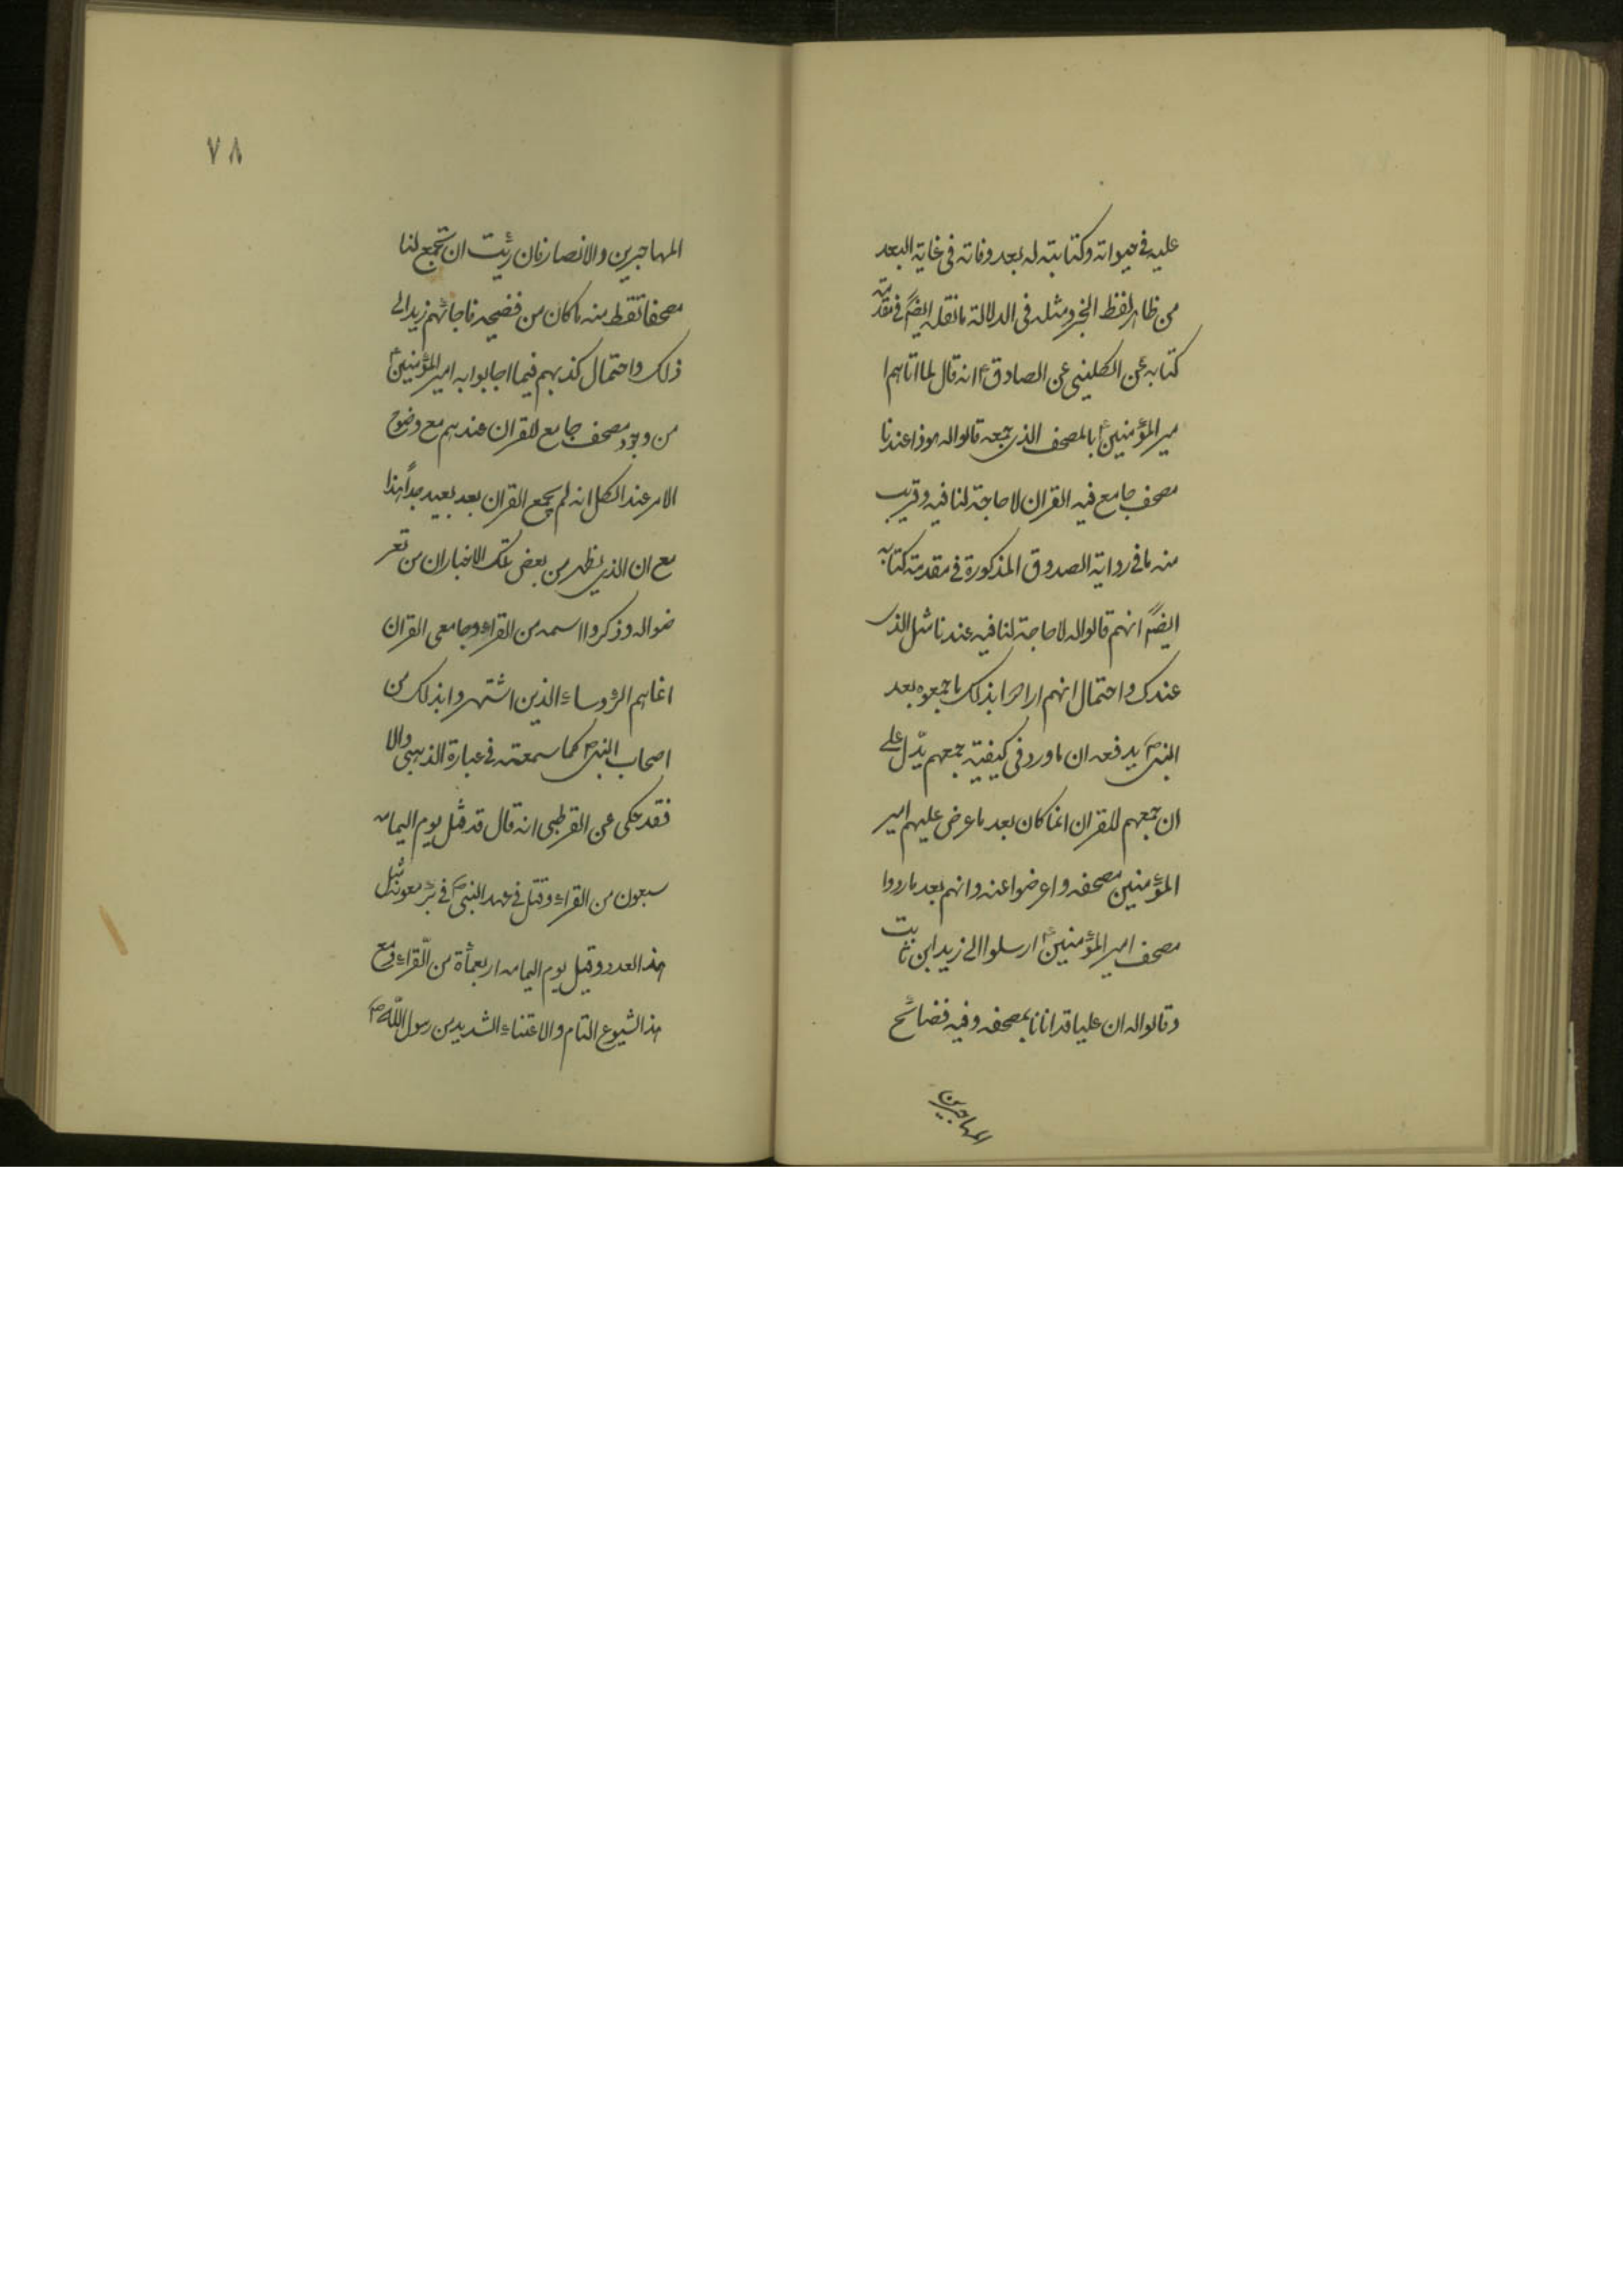 عليه في حيواته وكتابته له بعد وفاته في غاية البعد
من ظاهر لفظ الخبر ومثله في الدلالة ما نقله ايضاً في مقدمة
كتابه عن الكليني عن الصادق ع انه قال لما اتاهم ا
مير المؤمنين ع بالمصحف الذي جمعه قالوا له هوذا عندنا
مصحف جامع فيه القران لا حاجة لنا فيه وقريب
منه ما في رواية الصدوق المذكورة في مقدمة كتابه
ايضاً انهم قالوا له لا حاجة لنا فيه عندنا مثل الذي
عندك واحتمال انهم ارادوا بذلك ما جمعوه بعد
النبي ص يدفعه ان ما ورد في كيفية جمعهم يدّل على
ان جمعهم للقران انما كان بعد ما عرض عليهم امير
المؤمنين مصحفه واعرضوا عنه وانهم بعد ما ردوا
مصحف امير المؤمنين ع ارسلوا الى زيد ابن ثابت
وقالوا له ان عليا قد اتانا بمصحفه وفيه فضائح
المهاجرين
٧٨
المهاجرين والانصار فان رئيت ان تجمع لنا
مصحفا تقط منه ما كان من فضيحه فاجائهم زيد الى
ذلك واحتمال كذبهم فيما اجابوا به امير المؤمنين ع
من وجود مصحف جامع للقران عندهم مع وضوح
الامر عند الكل انه لم يجمع القران بعد بعيد جداً هذا
مع ان الذي يظهر من بعض تلك الاخبار ان من تعر
ضوا له وذكروا اسمه من القراء وجامعي القران
انما هم الرؤوساء الذين اشتهروا بذلك من
اصحاب النبي ص كما سمعته في عبارة الذهبي والا
فقد حكي عن القرطبي انه قال قد قتل يوم اليمامه
سبعون من القراء وقتل في عهد النبي ص في بئر معونه مثل
هذا العدد وقيل يوم اليمامه اربعمأة من القراء ومع
هذا الشيوع التام والاعتناء الشديد من رسول اللّه ص